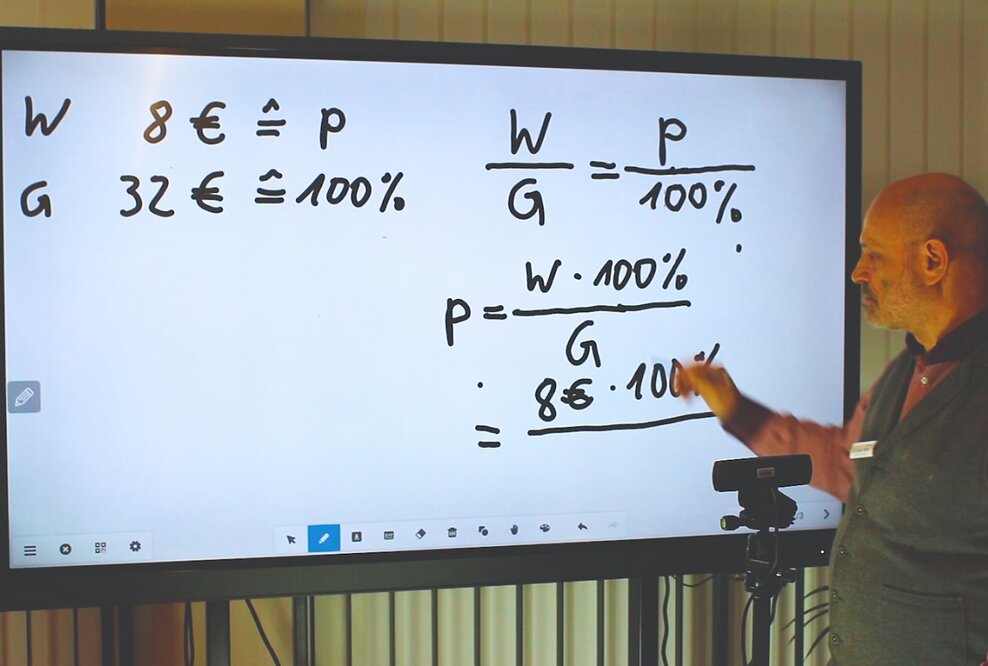 W 8 € ≙ p
G 32 € ≙ 100%
W
G
=
p
100%
p = W · 100%
G
= 8€ · 100%